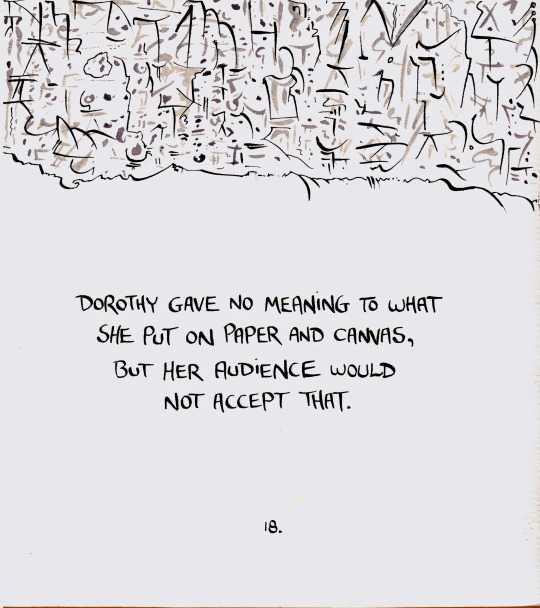 DOROTHY GAVE NO MEANING TO WHAT
SHE PUT ON PAPER AND CANVAS,
BUT HER AUDIENCE WOULD
NOT ACCEPT THAT.
18.